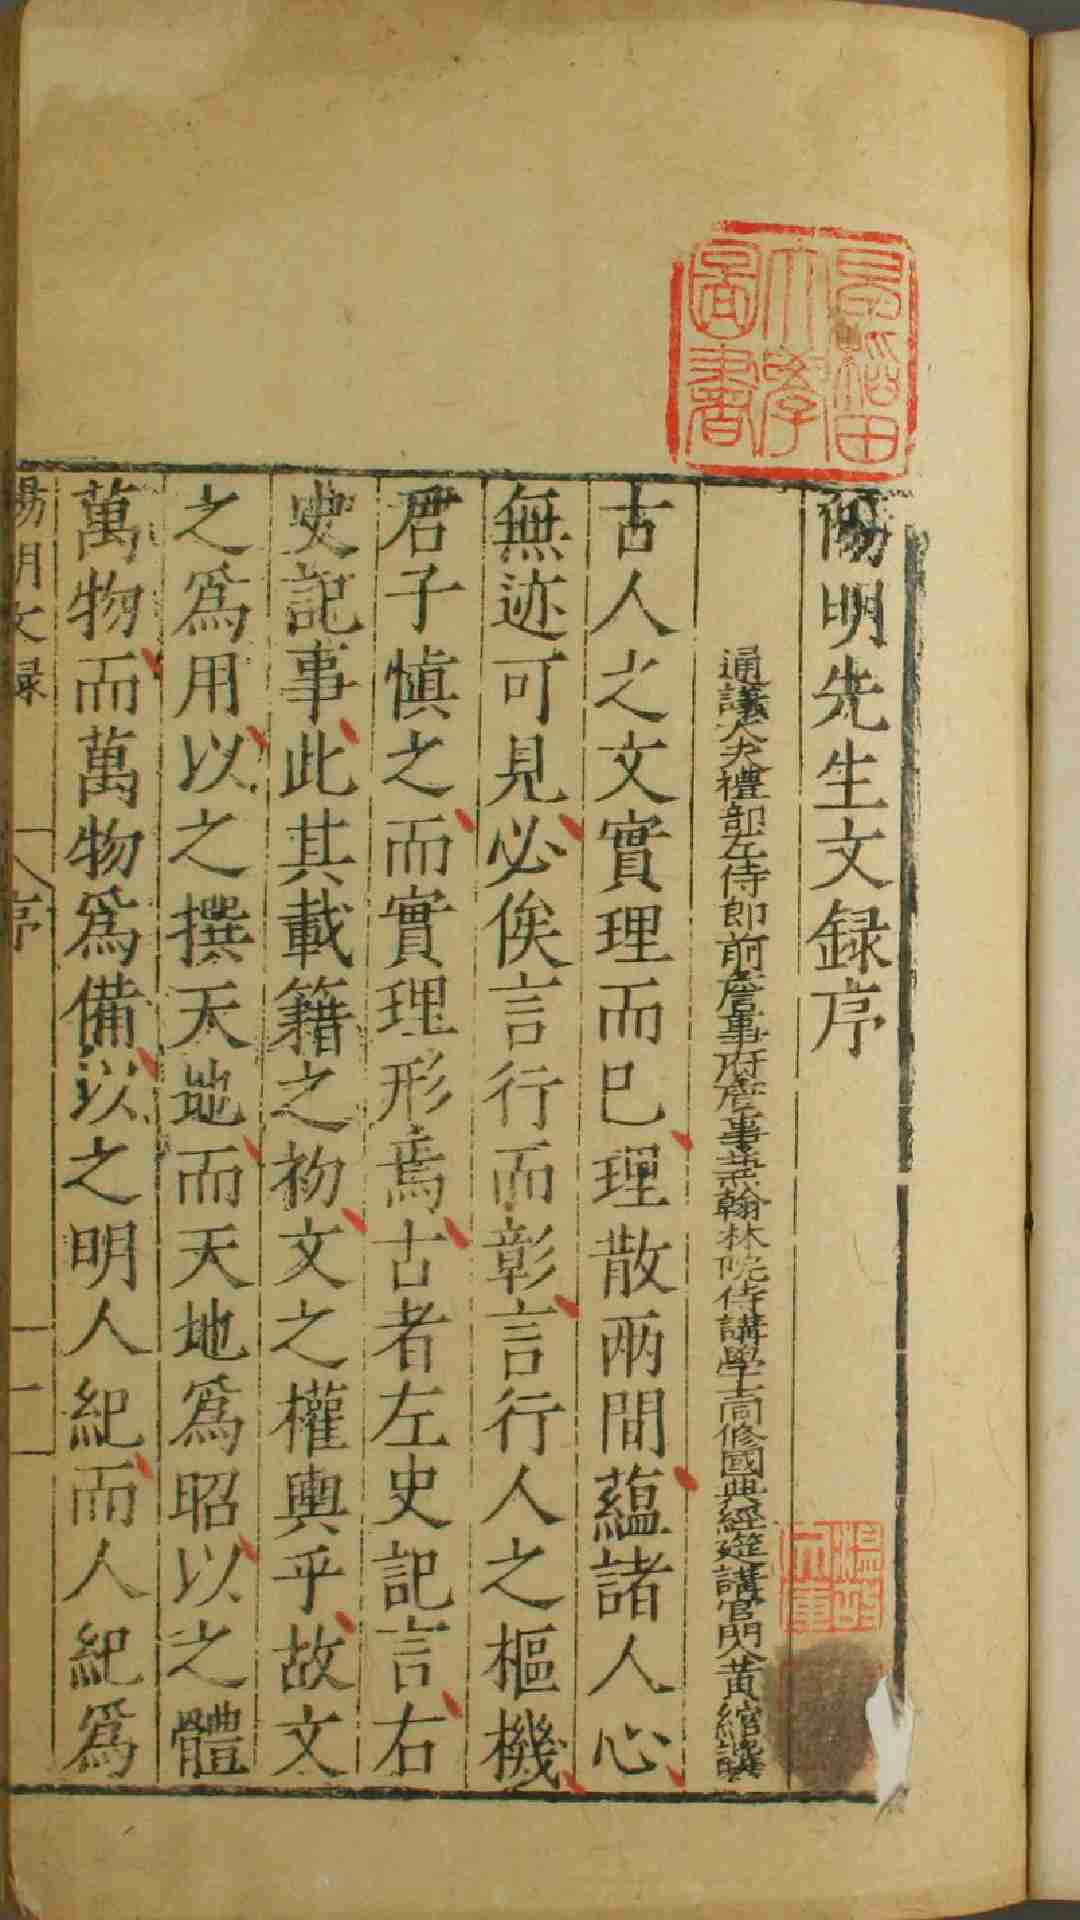 陽明先生文録序
通議大夫禮部左侍郎前詹事府詹事兼翰林院侍講學士同修國典經筵講官門人黃綰譔
古人之文實理而已理散兩間蘊諸人心
無迹可見必俟言行而彰言行人之樞機
君子慎之而實理形焉古者左史記言右
史記事此其載籍之初文之權輿乎故文
之爲用以之撰天地而天地爲昭以之體
萬物而萬物爲備以之明人紀而人紀爲
陽明文録
序
一
早稻田
大學
圖書